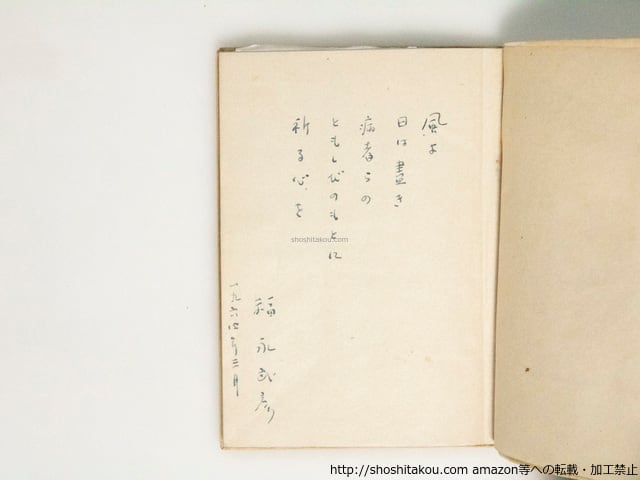 風よ
日は畫き
病者らの
ともしびのもとに
祈る心を
福永武彦
一九六四年二月
shoshitakou.com
http://shoshitakou.com amazon等への転載・加工禁止